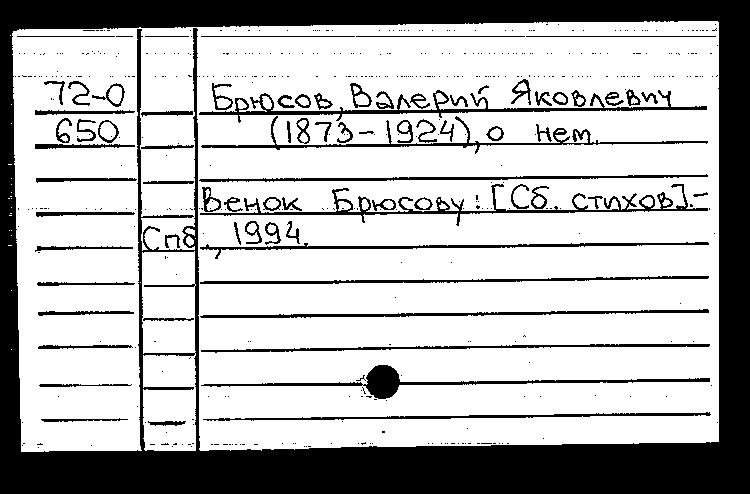 72-0 Брюсов, Валерий Яковлевич
650 (1873-1924), о нем.
Венок Брюсову: [Сб. стихов].-
Спб., 1994.